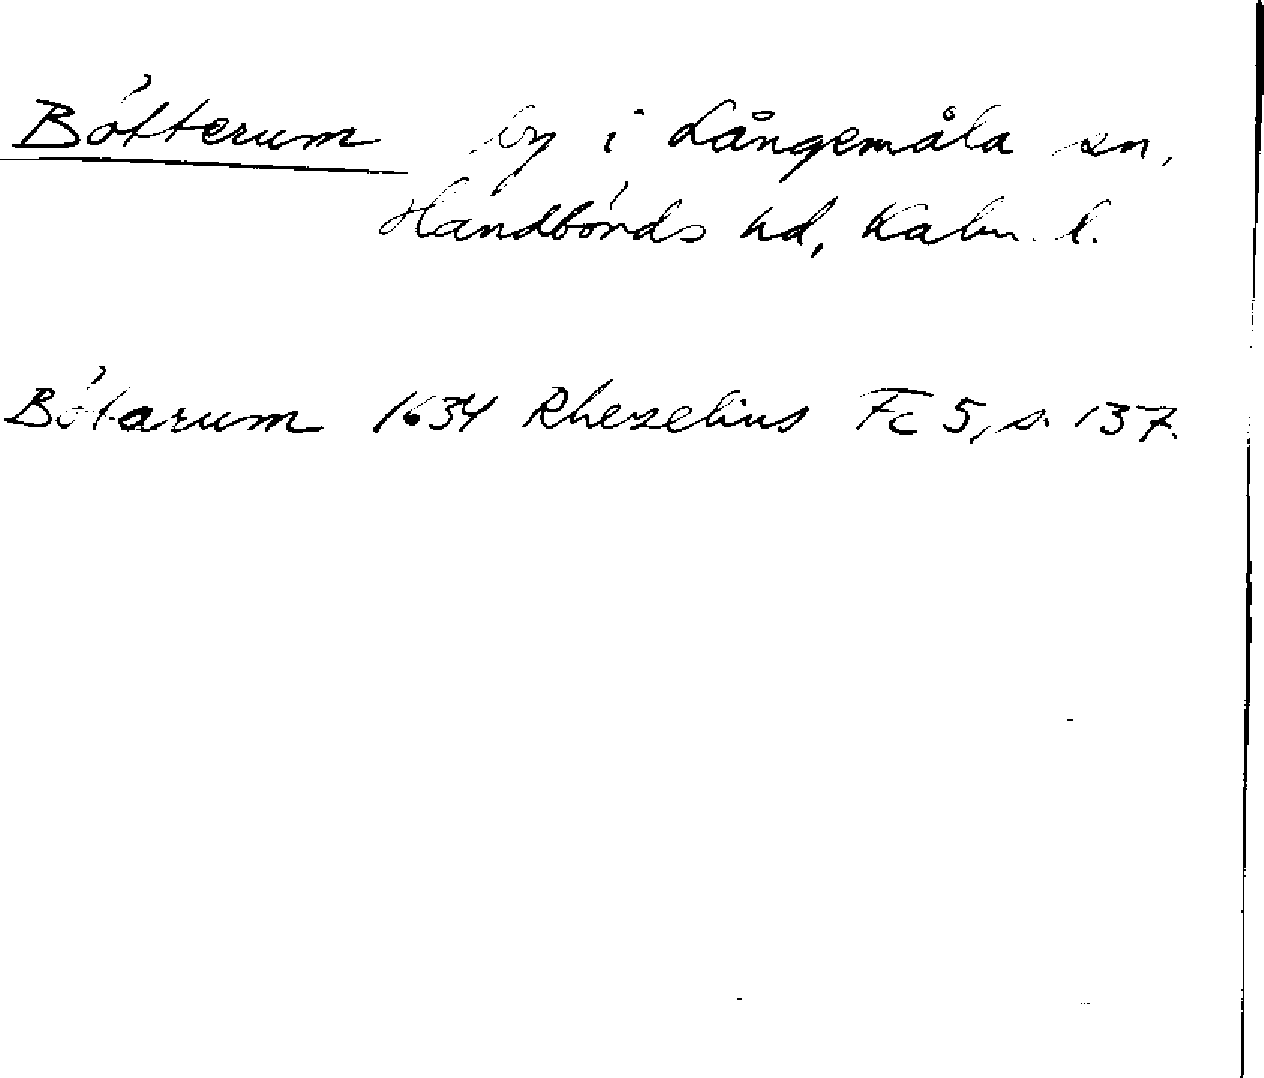 Bötterum by i Långemåla sn,
Handbörds hd, Kalm. l.
Bötarum 1634 Rhezelius Fc 5, s. 137.